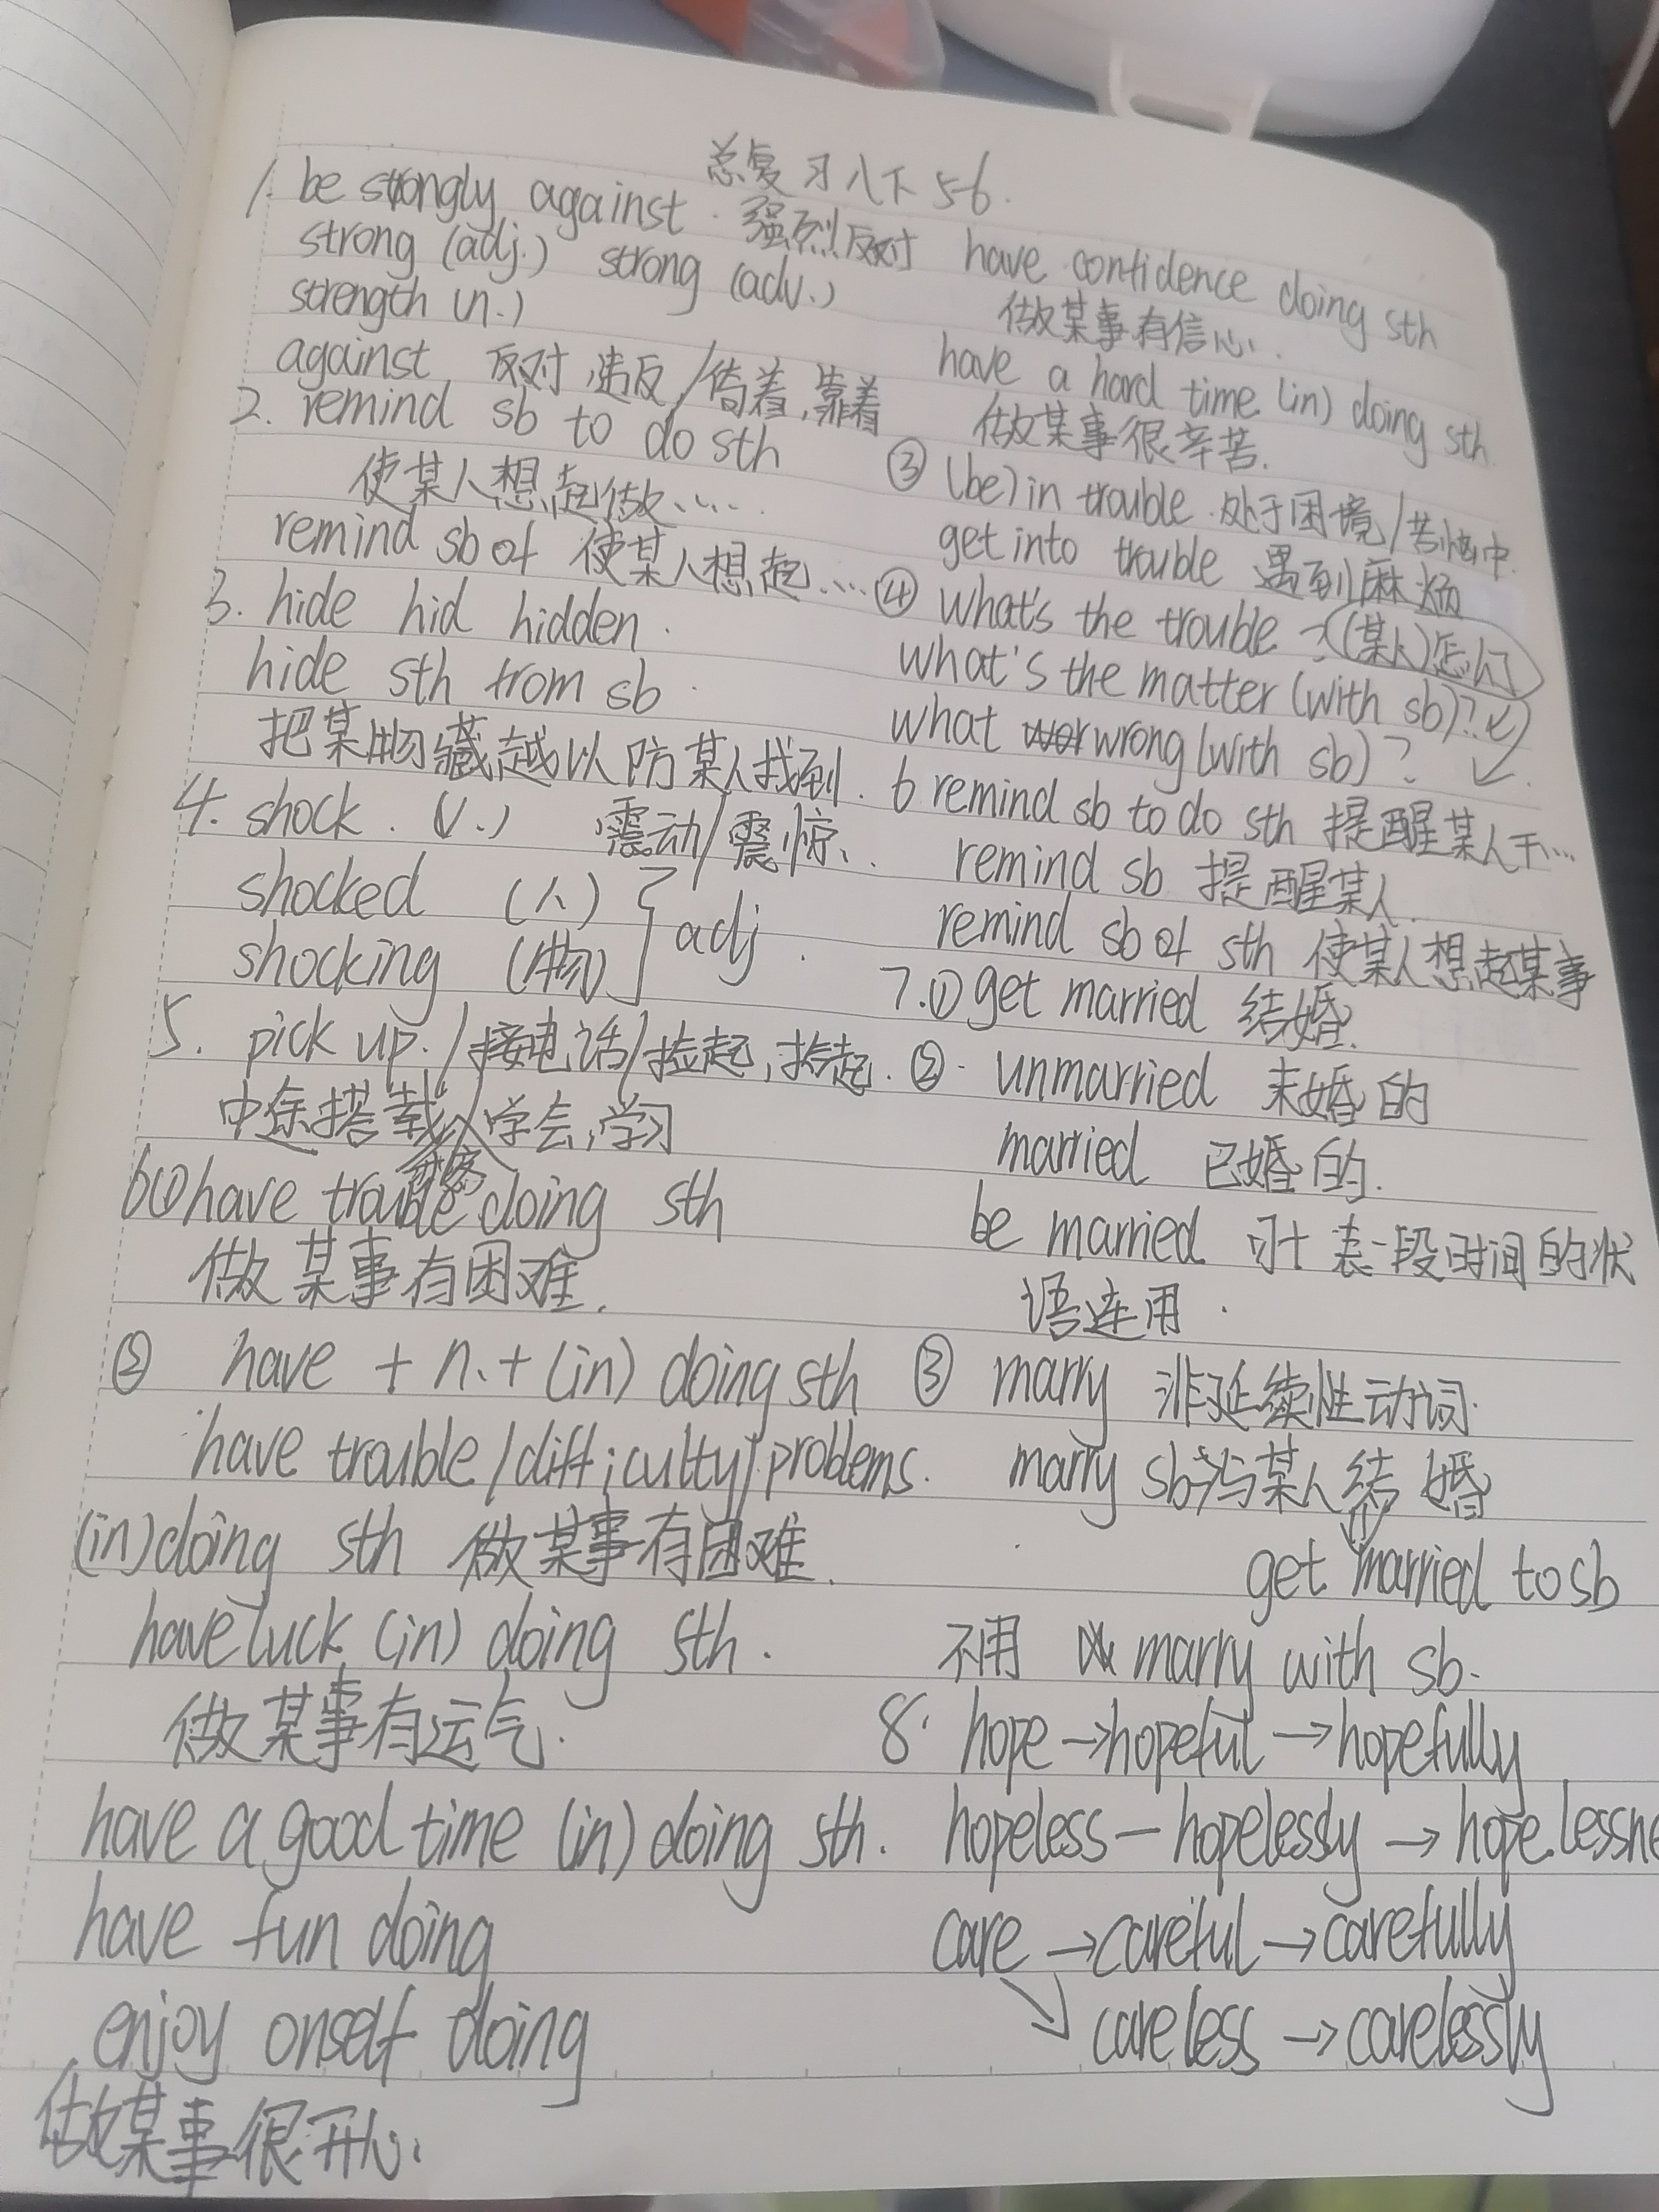 总复习八下5-6.
1. be strongly against. 强烈反对
strong (adj.) strong (adv.)
strength (n.)
against 反对,违反/倚着,靠着
2. remind sb to do sth
使某人想起做……
remind sb of 使某人想起……
3. hide hid hidden.
hide sth from sb.
把某物藏起以防某人找到.
4. shock. (v.) 震动/震惊..
shocked (人)
shocking (物) adj.
5. pick up./接电话/捡起,拾起.
中途搭载 学会,学习
6① have trouble doing sth
做某事有困难.
② have + n. + (in) doing sth
have trouble/difficulty/problems.
(in) doing sth 做某事有困难.
have luck (in) doing sth.
做某事有运气.
have a good time (in) doing sth.
have fun doing
enjoy onself doing
做某事很开心.
have confidence doing sth
做某事有信心.
have a hard time (in) doing sth
做某事很辛苦.
③ (be) in trouble 处于困境/苦恼中.
get into trouble 遇到麻烦
④ what's the trouble → (某人)怎么了
what's the matter (with sb)?
what wrong (with sb)?
6 remind sb to do sth 提醒某人干…
remind sb 提醒某人
remind sb of sth 使某人想起某事
7.① get married 结婚.
②. unmarried 未婚的
married 已婚的.
be married 可+表一段时间的状
语连用.
③ marry 非延续性动词.
marry sb 与某人结婚
get married to sb
不用 marry with sb.
8. hope → hopeful → hopefully
hopeless — hopelessly → hopelessne
care → careful → carefully
careless → carelessly